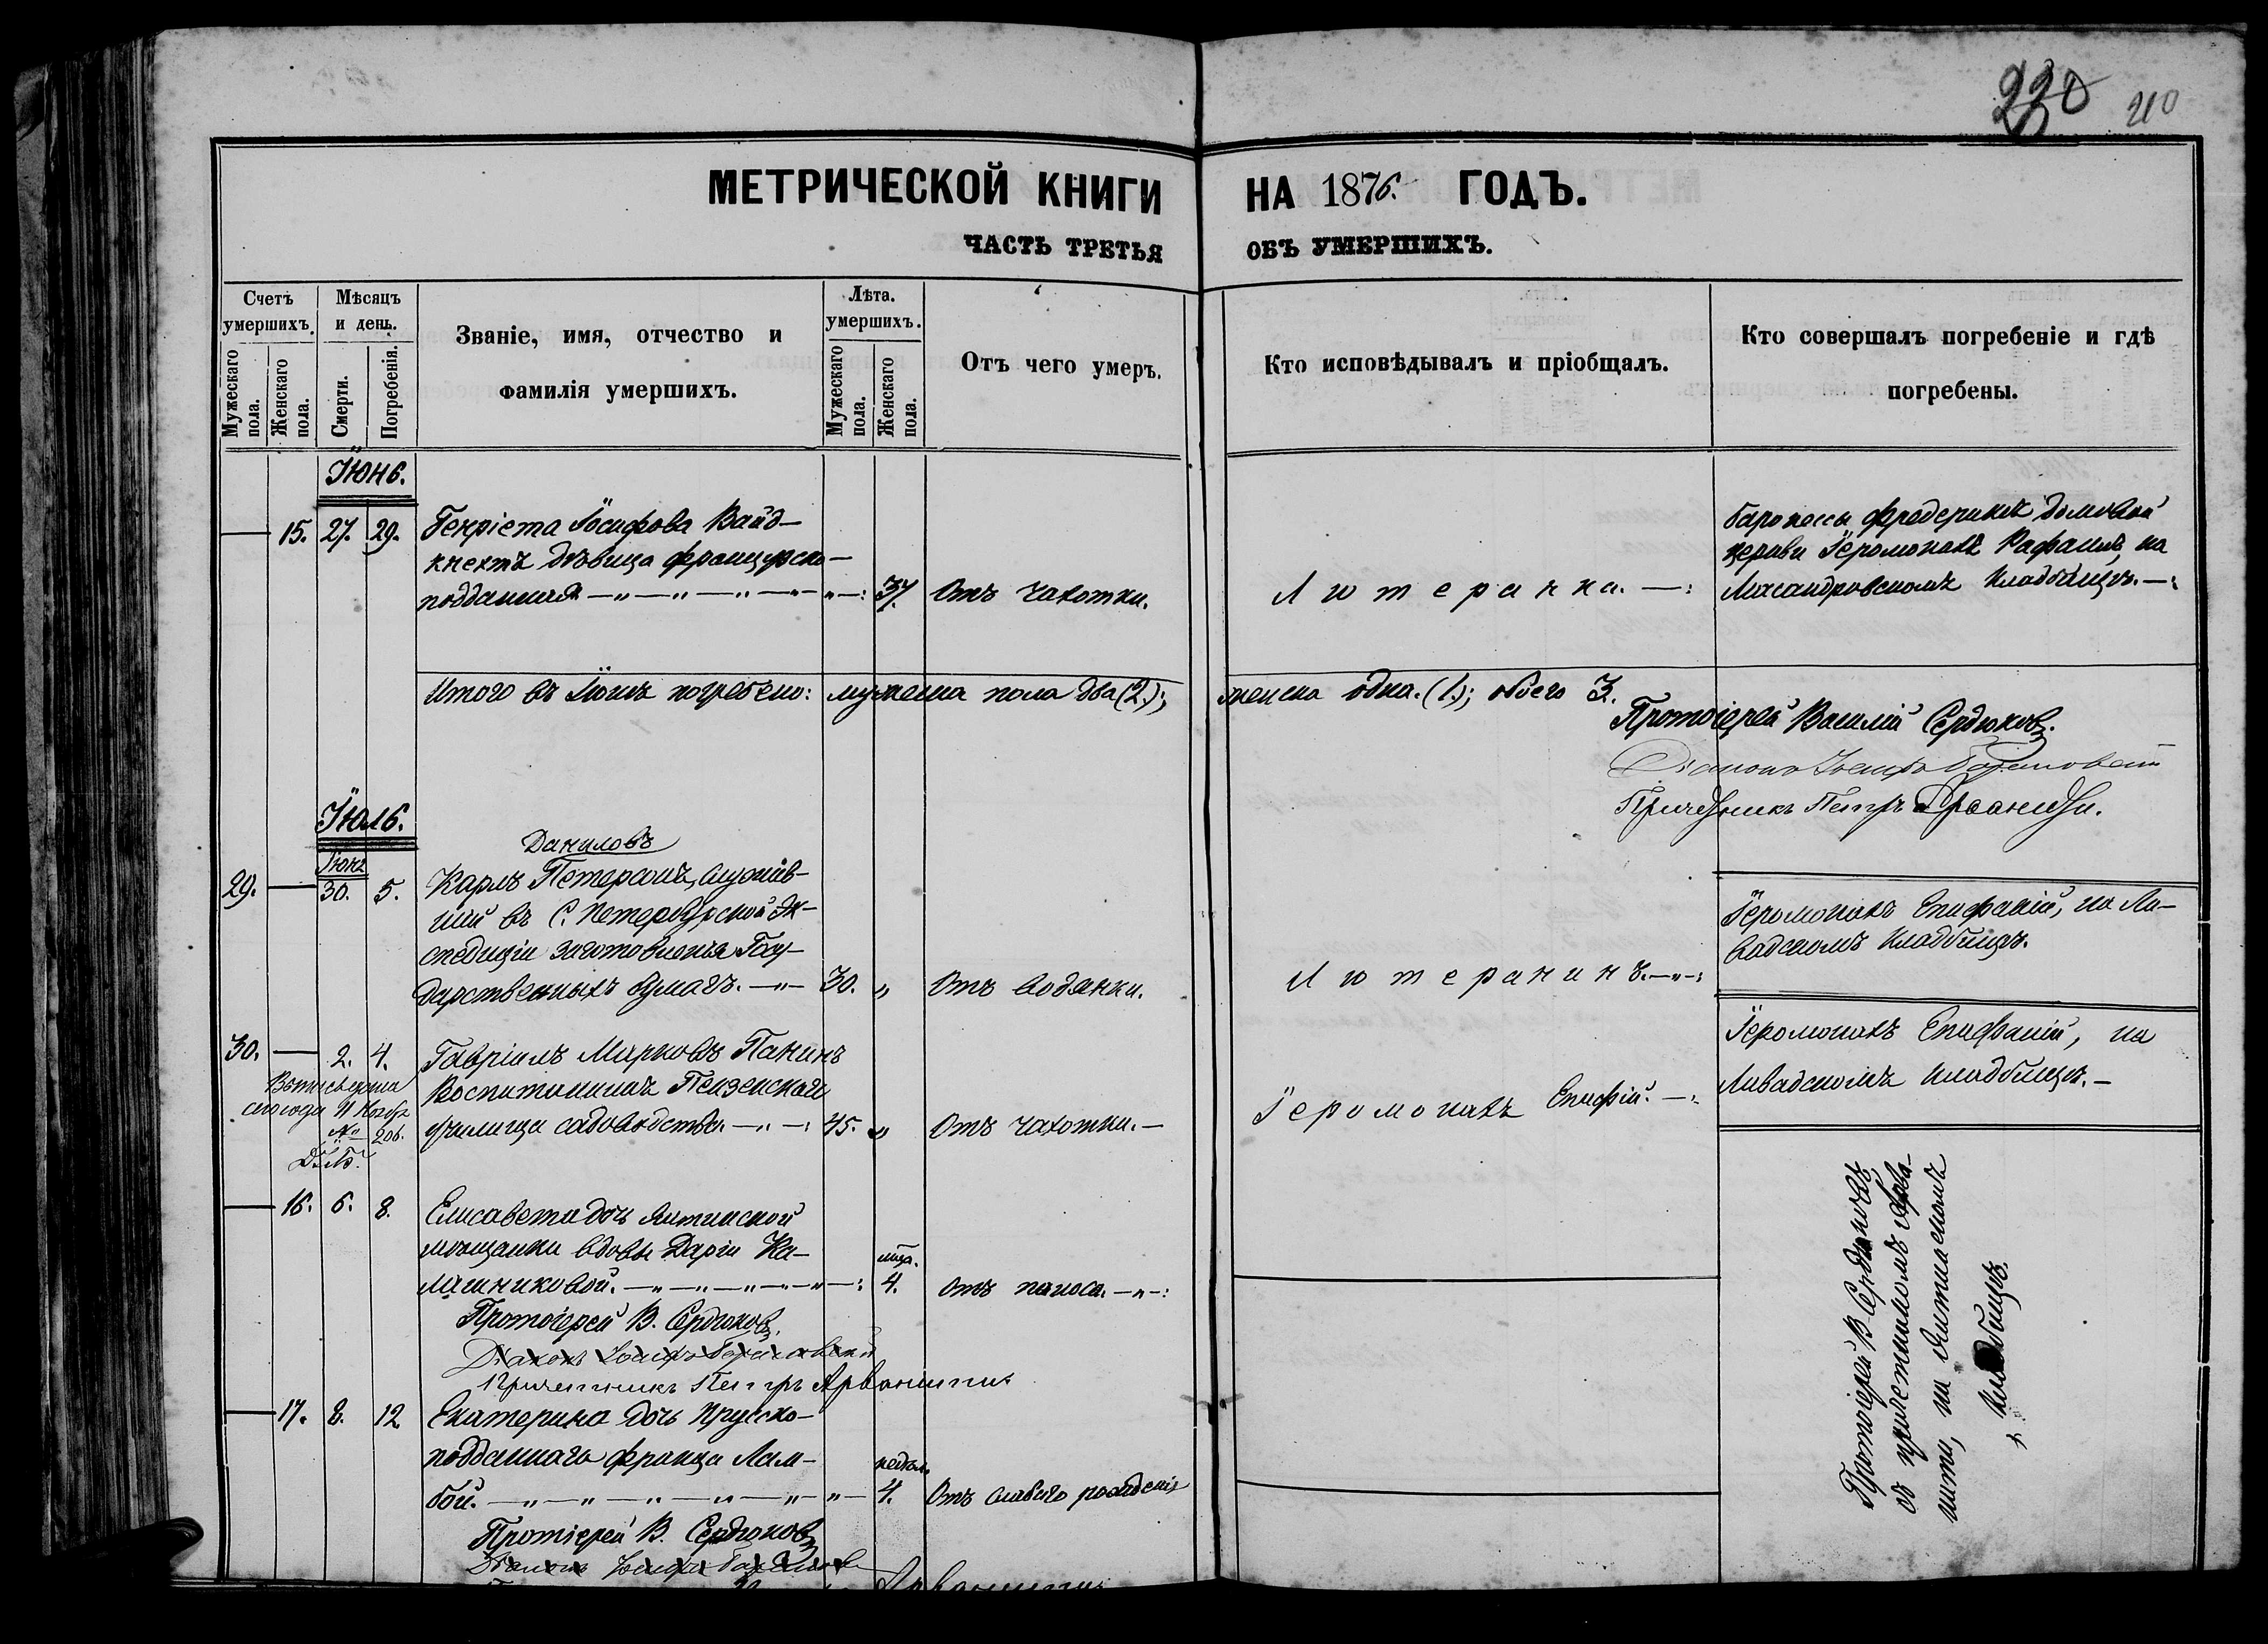 220 210
МЕТРИЧЕСКОЙ КНИГИ НА 1876. ГОДЪ.
ЧАСТЬ ТРЕТЬЯ ОБЪ УМЕРШИХЪ.
Счетъ умершихъ.
Мужескаго пола.
Женскаго пола.
Мѣсяцъ и день.
Смерти.
Погребенія.
Званіе, имя, отчество и
фамилія умершихъ.
Лѣта. умершихъ.
Мужескаго пола.
Женскаго пола.
Отъ чего умеръ.
Кто исповѣдывалъ и пріобщалъ.
Кто совершалъ погребеніе и гдѣ
погребены.
Іюнь.
15. 27. 29. Генріета Іосифова Вайд-
кнехтъ дѣвица французско-
подданная 37. Отъ чахотки.
Лютеранка.
баронессы Фредериксъ домовой
церкви Іеромонахъ Рафаилъ, на
Масандровскомъ кладбищѣ.
Итого въ Іюнѣ погребено: мужеска пола два (2.); женска одна. (1.); обоего 3.
Протоіерей Василій Сердюковъ.
Діаконъ Іосифъ
Причетникъ Петръ
Іюль.
Даниловъ
Іюня
29. 30. 5. Карлъ Петерсонъ, служив-
шій въ С. Петербургской Эк-
спедиціи заготовленія Госу-
дарственныхъ бумагъ. 30. Отъ водянки.
Лютеранинъ.
Іеромонахъ Епифаній, на Ли-
вадскомъ кладбищѣ.
30. 2. 4. Гавріилъ Марковъ Панинъ
Воспитанникъ Пензенскаго
училища садоводства. 45. Отъ чахотки.
№ 206.
Іеромонахъ Епифій.
Іеромонахъ Епифаній, на
Ливадскомъ кладбищѣ.
16. 6. 8. Елисавета дочь Ялтинской
мѣщанки вдовы Даріи Ка-
лашниковой. мѣс. 4. Отъ поноса.
Протоіерей В. Сердюковъ.
Діаконъ Іосифъ
Причетникъ Петръ Арванити
17. 8. 12 Екатерина дочь Прусско-
подданнаго Франца Лам-
бой. недѣл. 4. Отъ слабаго рожденія
Протіерей В. Сердюковъ
Діаконъ Іосифъ
Протоіерей В. Сердюковъ
съ причетникомъ Арва-
нити, на Ялтинскомъ
кладбищѣ.